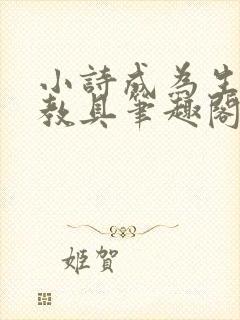 小詩成為生
教具筆趣閣
姬賀